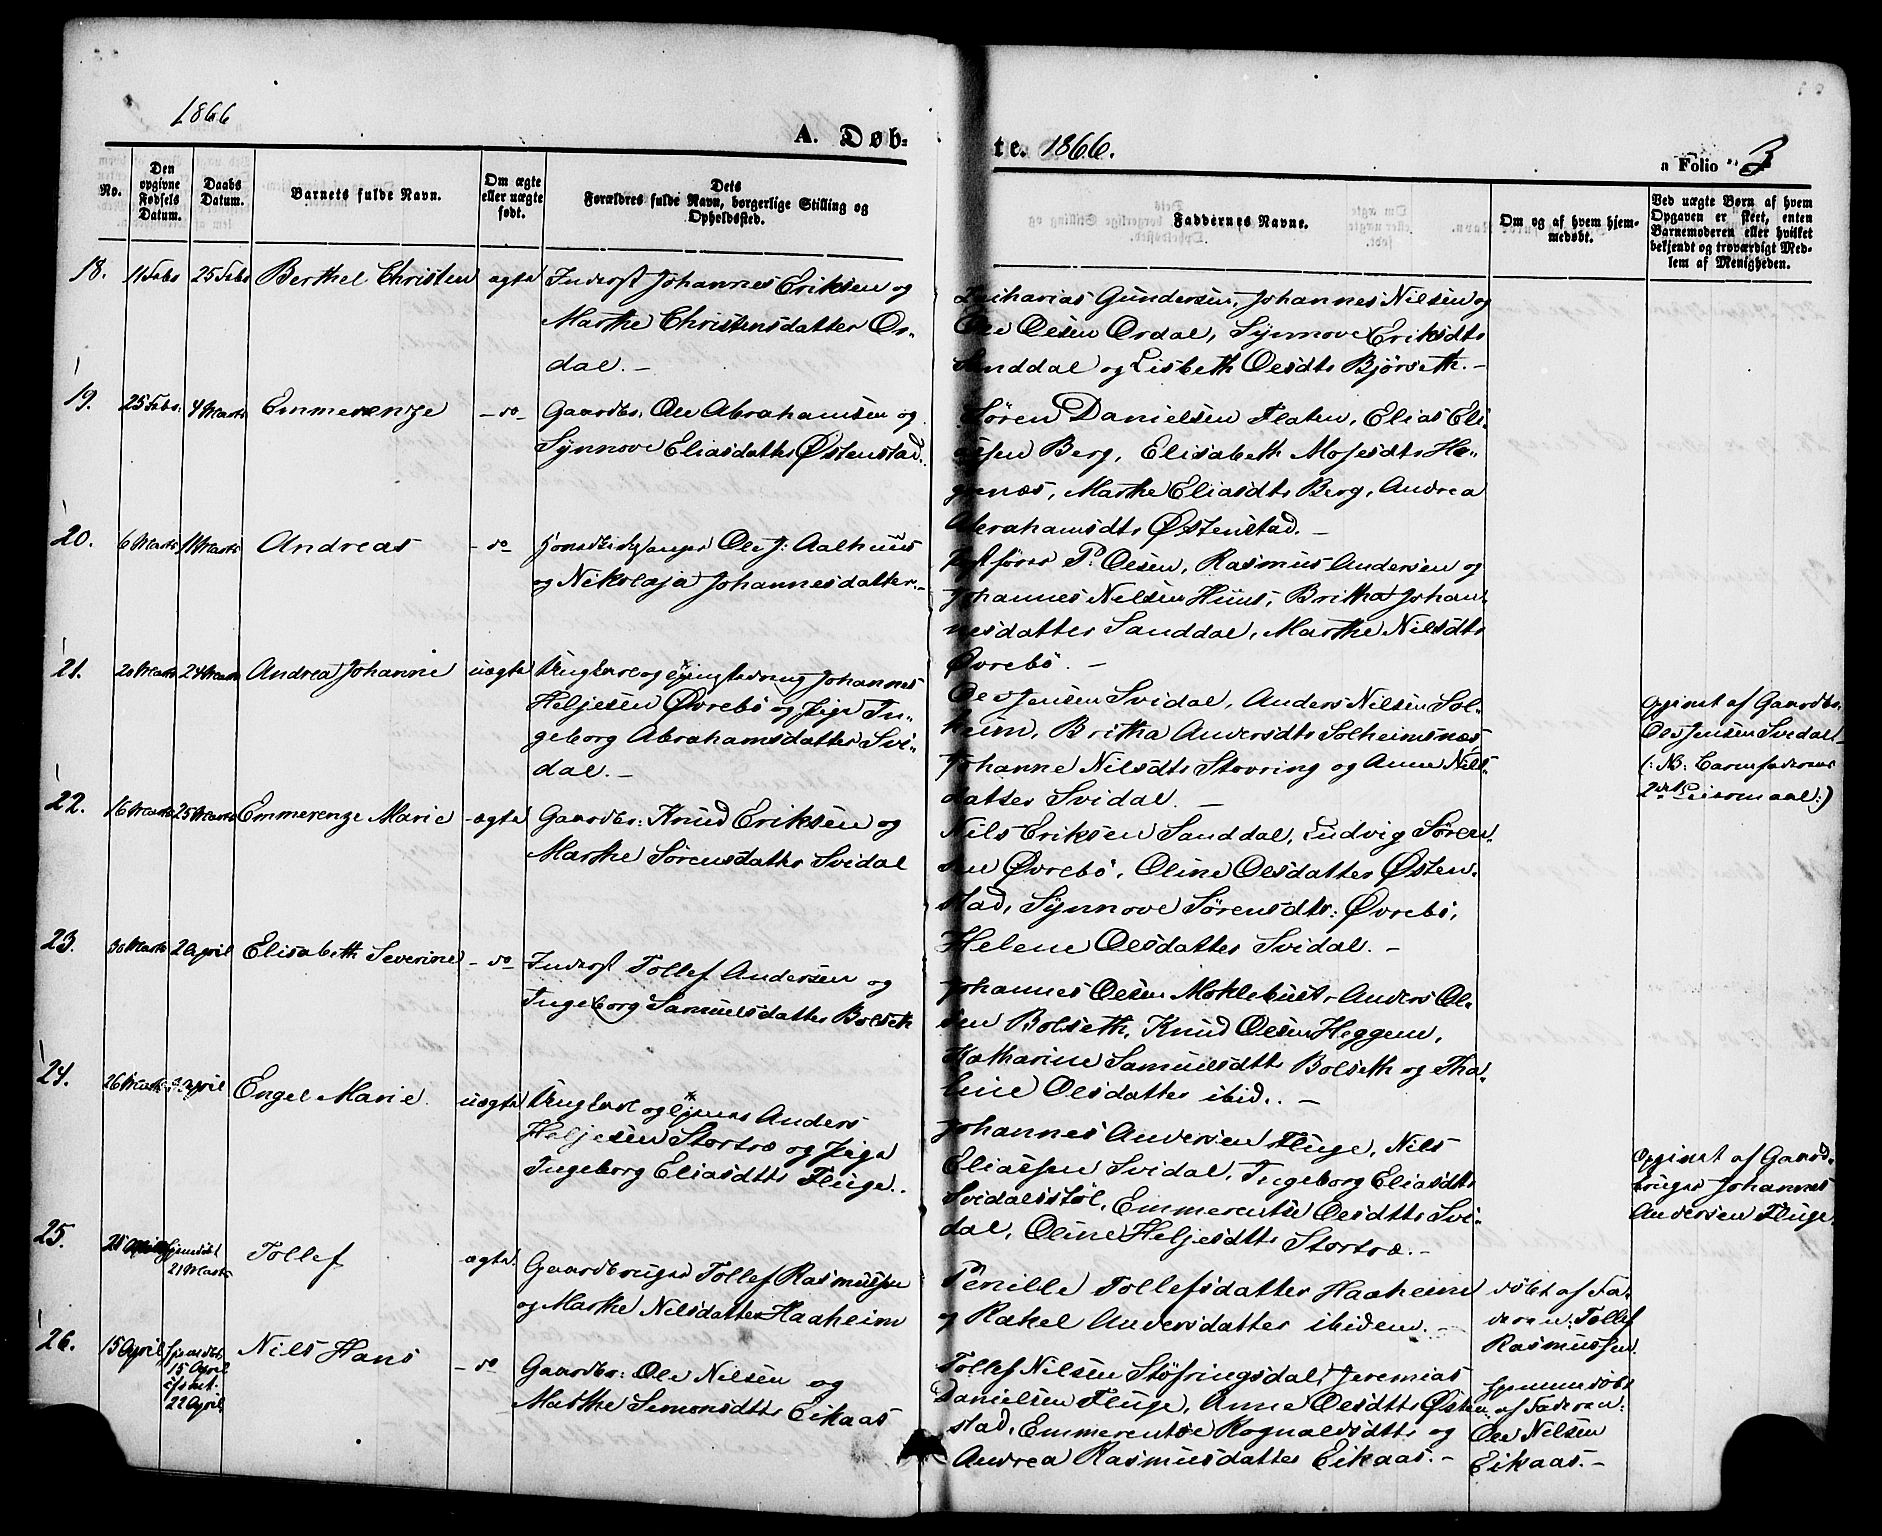 1866
A. Døb-
te. 1866.
Folio 3
No.
Den opgivne Fødsels Datum.
Daabs Datum.
Barnets fulde Navn.
Om ægte eller uægte født.
Dets Forældres fulde Navn, borgerlige Stilling og Opholdssted.
Faddernes Navne.
Om og af hvem hjemmedøbt.
Ved uægte Børn af hvem Opgaven er skeet, enten Barnemoderen eller hvilket bekjendt og troværdigt Medlem af Menigheden.
18. 11 Febr 25 Febr Berthel Christen ægte Inderst Johannes Eriksen og
Marthe Christensdatter Or-
dal. -
Zacharias Gundersen, Johannes Nilsen og
Ole Olsen Ordal, Synnove Eriksdtr
Sanddal og Lisbeth Olesdtr Bjørseth. -
19. 25 Febr: 4 Marts Emmerenze - do - Gaardbr: Ole Abrahamsen og
Synnove Eliasdatter Østenstad.
Søren Danielsen Flaten, Elias Eli-
assen Berg, Elisabeth Mosesdtr He-
grenæs, Marthe Eliasdtr Berg, Andrea
Abrahamsdtr Østenstad. -
20. 6 Marts 11 Marts Andreas - do Ole J: Aalhuus
og Nikolaja Johannesdatter. -
P. Olsen, Rasmus Andersen og
Johannes Nilsen Huus, Britha Johan-
nesdatter Sanddal, Marthe Nilsdtr
Øvrebö. -
21. 20 Marts 24 Marts Andrea Johanne uægte Ungkarl og Johannes
Heljesen Øvrebö og Pige In-
geborg Abrahamsdatter Svi-
dal. -
Ole Jensen Svidal, Anders Nilsen Sol-
heim, Britha Andersdtr Solheimsnæs
Johanne Nilsdtr Stovring og Anne Nils-
datter Svidal. -
Opgivet af Gaardbr.
Ole Jensen Svidal -
(: NB: Barnefaderens
2det Leiermaal:)
22. 16 Marts 25 Marts Emmerenze Marie - ægte Gaardbr: Knud Eriksen og
Marthe Sørensdatter Svidal
Nils Eriksen Sanddal, Ludvig Søren-
sen Øvrebö, Oline Olesdatter Østen-
stad, Synnove Sørensdtr: Øvrebö,
Helene Olesdatter Svidal. -
23. 30 Marts 2 April Elisabeth Severine - do Inderst Tollef Andersen og
Ingeborg Samuelsdatter Bolseth
Johannes Olsen Moklebust, Anders Ol-
sen Bolseth, Knud Olsen Heggem,
Katharine Samuelsdtr Bolseth og Tha-
line Olesdatter ibid.. -
24. 26 Marts April Engel Marie. uægte Ungkarl og Anders
Heljesen Stortræ og Pige
Ingeborg Eliasdtr Fluge.
Johannes Andersen Fluge, Nils
Eliassen Svidal, Ingeborg Eliasdtr
Svidalsstöl, Emmerentse Olesdtr Svi-
dal, Oline Heljesdtr Stortræ. -
Opgivet af Gaard-
bruger Johannes
Andersen Fluge.
25. Hjemdöbt
21 Marts Tollef ægte Gaardbruger Tollef Rasmussen
og Marthe Nilsdatter Haaheim
Pernille Tollefsdatter Haaheim
og Rakel Andersdatter ibidem. -
döbt af Fa-
deren: Tollef
Rasmussen.
26. 15 April Hjemdöbt
15 April
22 April Nils Hans - do Gaardbr: Ole Nilsen og
Marthe Simonsdtr Eikaas
Tollef Nilsen Stöfringsdal, Jeremias
Danielsen Fluge, Anne Olesdtr Østen-
stad, Emmerentse Rognaldsdtr og
Andrea Rasmusdatter Eikaas. -
Hjemmedöbt
af Faderen:
Ole Nilsen
Eikaas. -